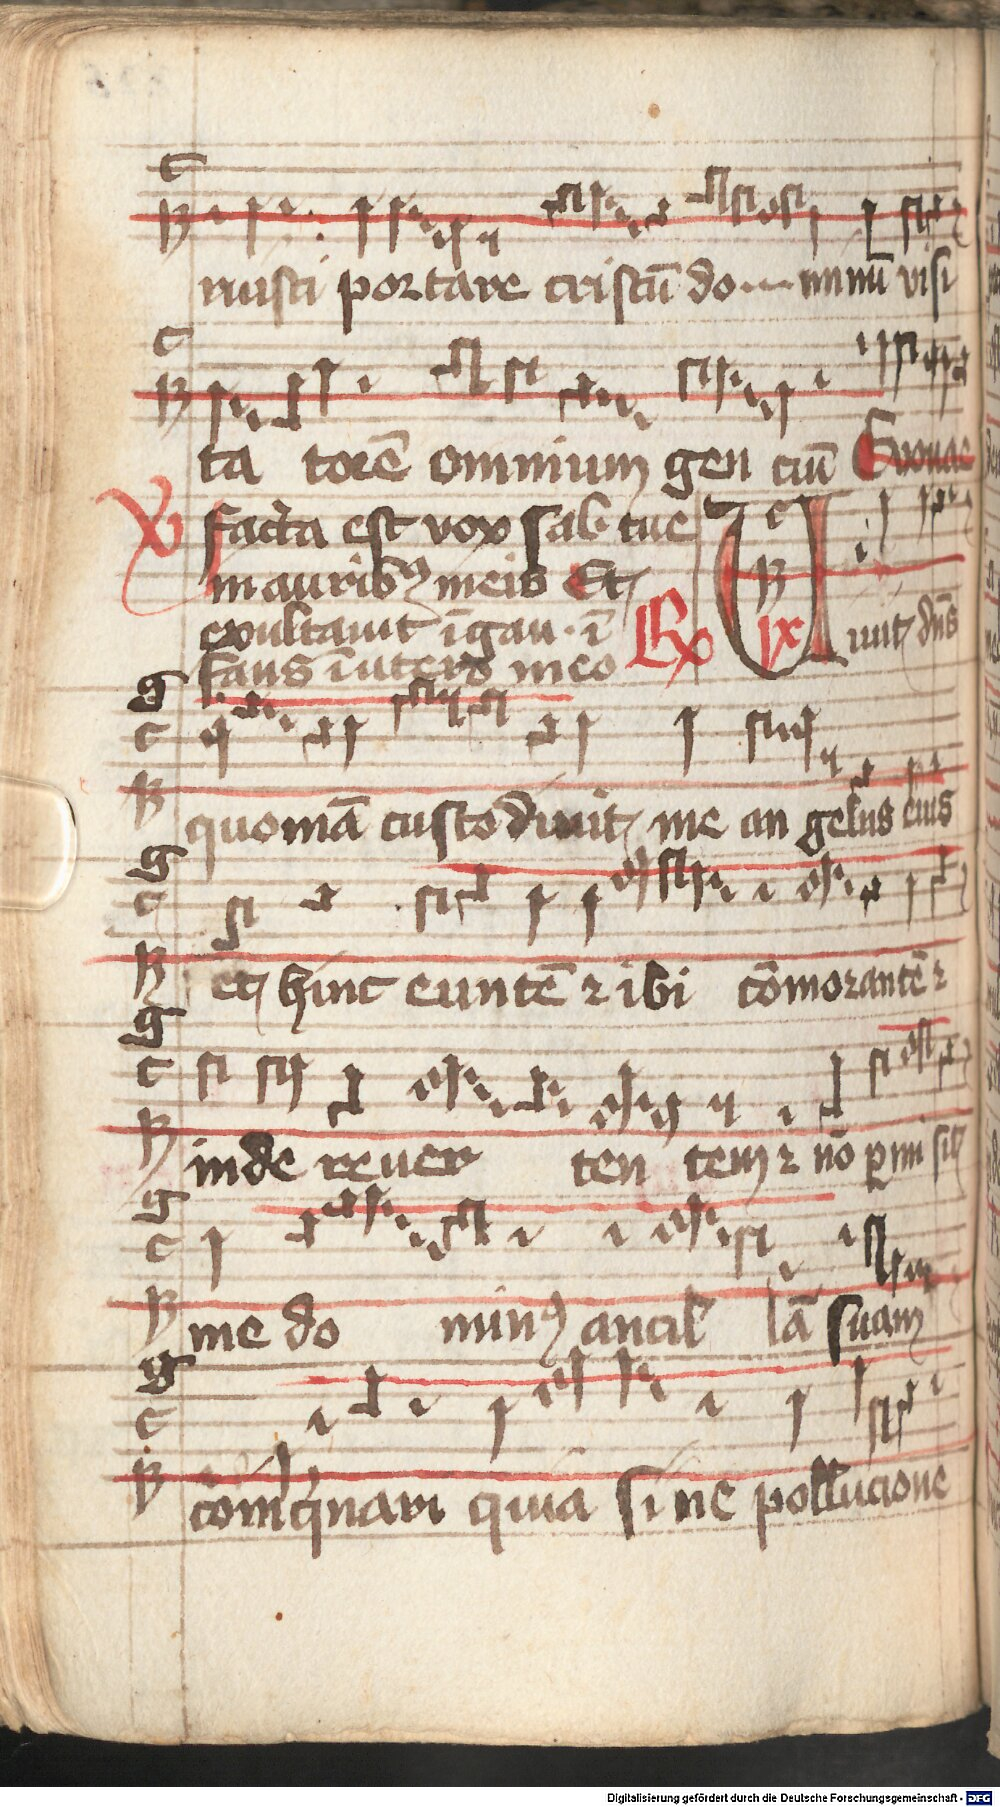 ruisti portare cristū do minū visi
ta torē omnium gen ciū Euouae
facta est vox sal tue
in aurib9 meis Et
exultauit ī gau ī
fans ī utero meo Rx Uiuit dns
quoniā custodiuit me an gelus eius
et hinc euntē 2 ibi cōmorantē 2
inde reuer ten tem 2 nō pmisit
me do min9 ancil lā suam
coinqnari quia sine pollucione
Digitalisierung gefördert durch die Deutsche Forschungsgemeinschaft - DFG